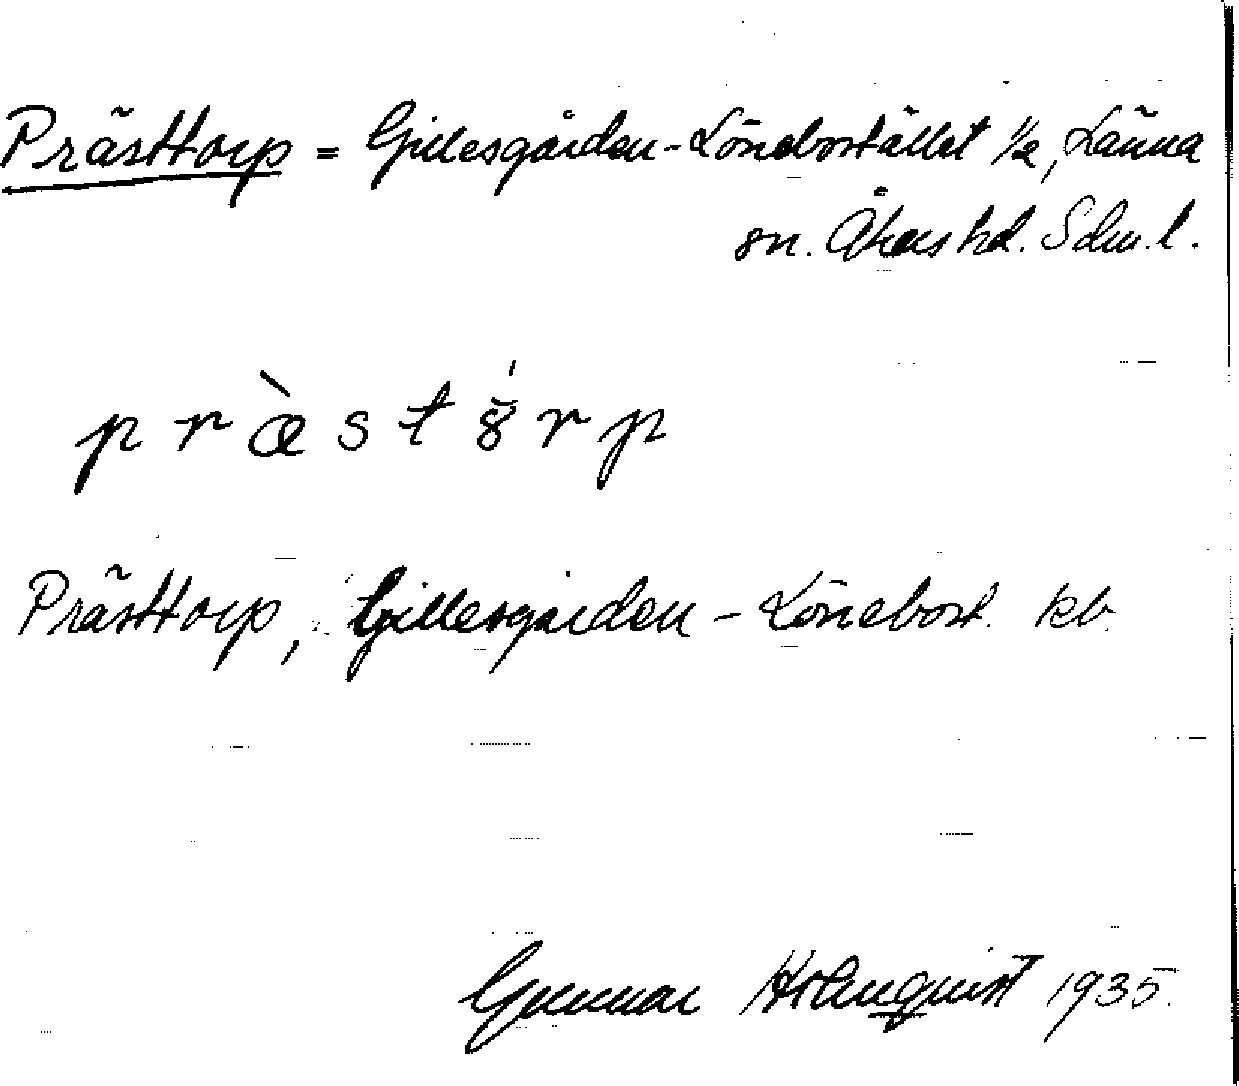 Prästtorp = Gillesgården-Lönebostället 1/2, Länna
sn. Åkers hd. Sdm. l.
p r æ̀ s t 8̆́ r p
Prästtorp, Gillesgården - Lönebost. kb.
Gunnar Holmquist 1935.